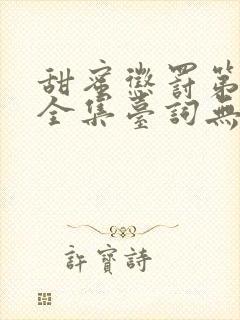 甜蜜懲罰第
全集臺詞無
許寶詩